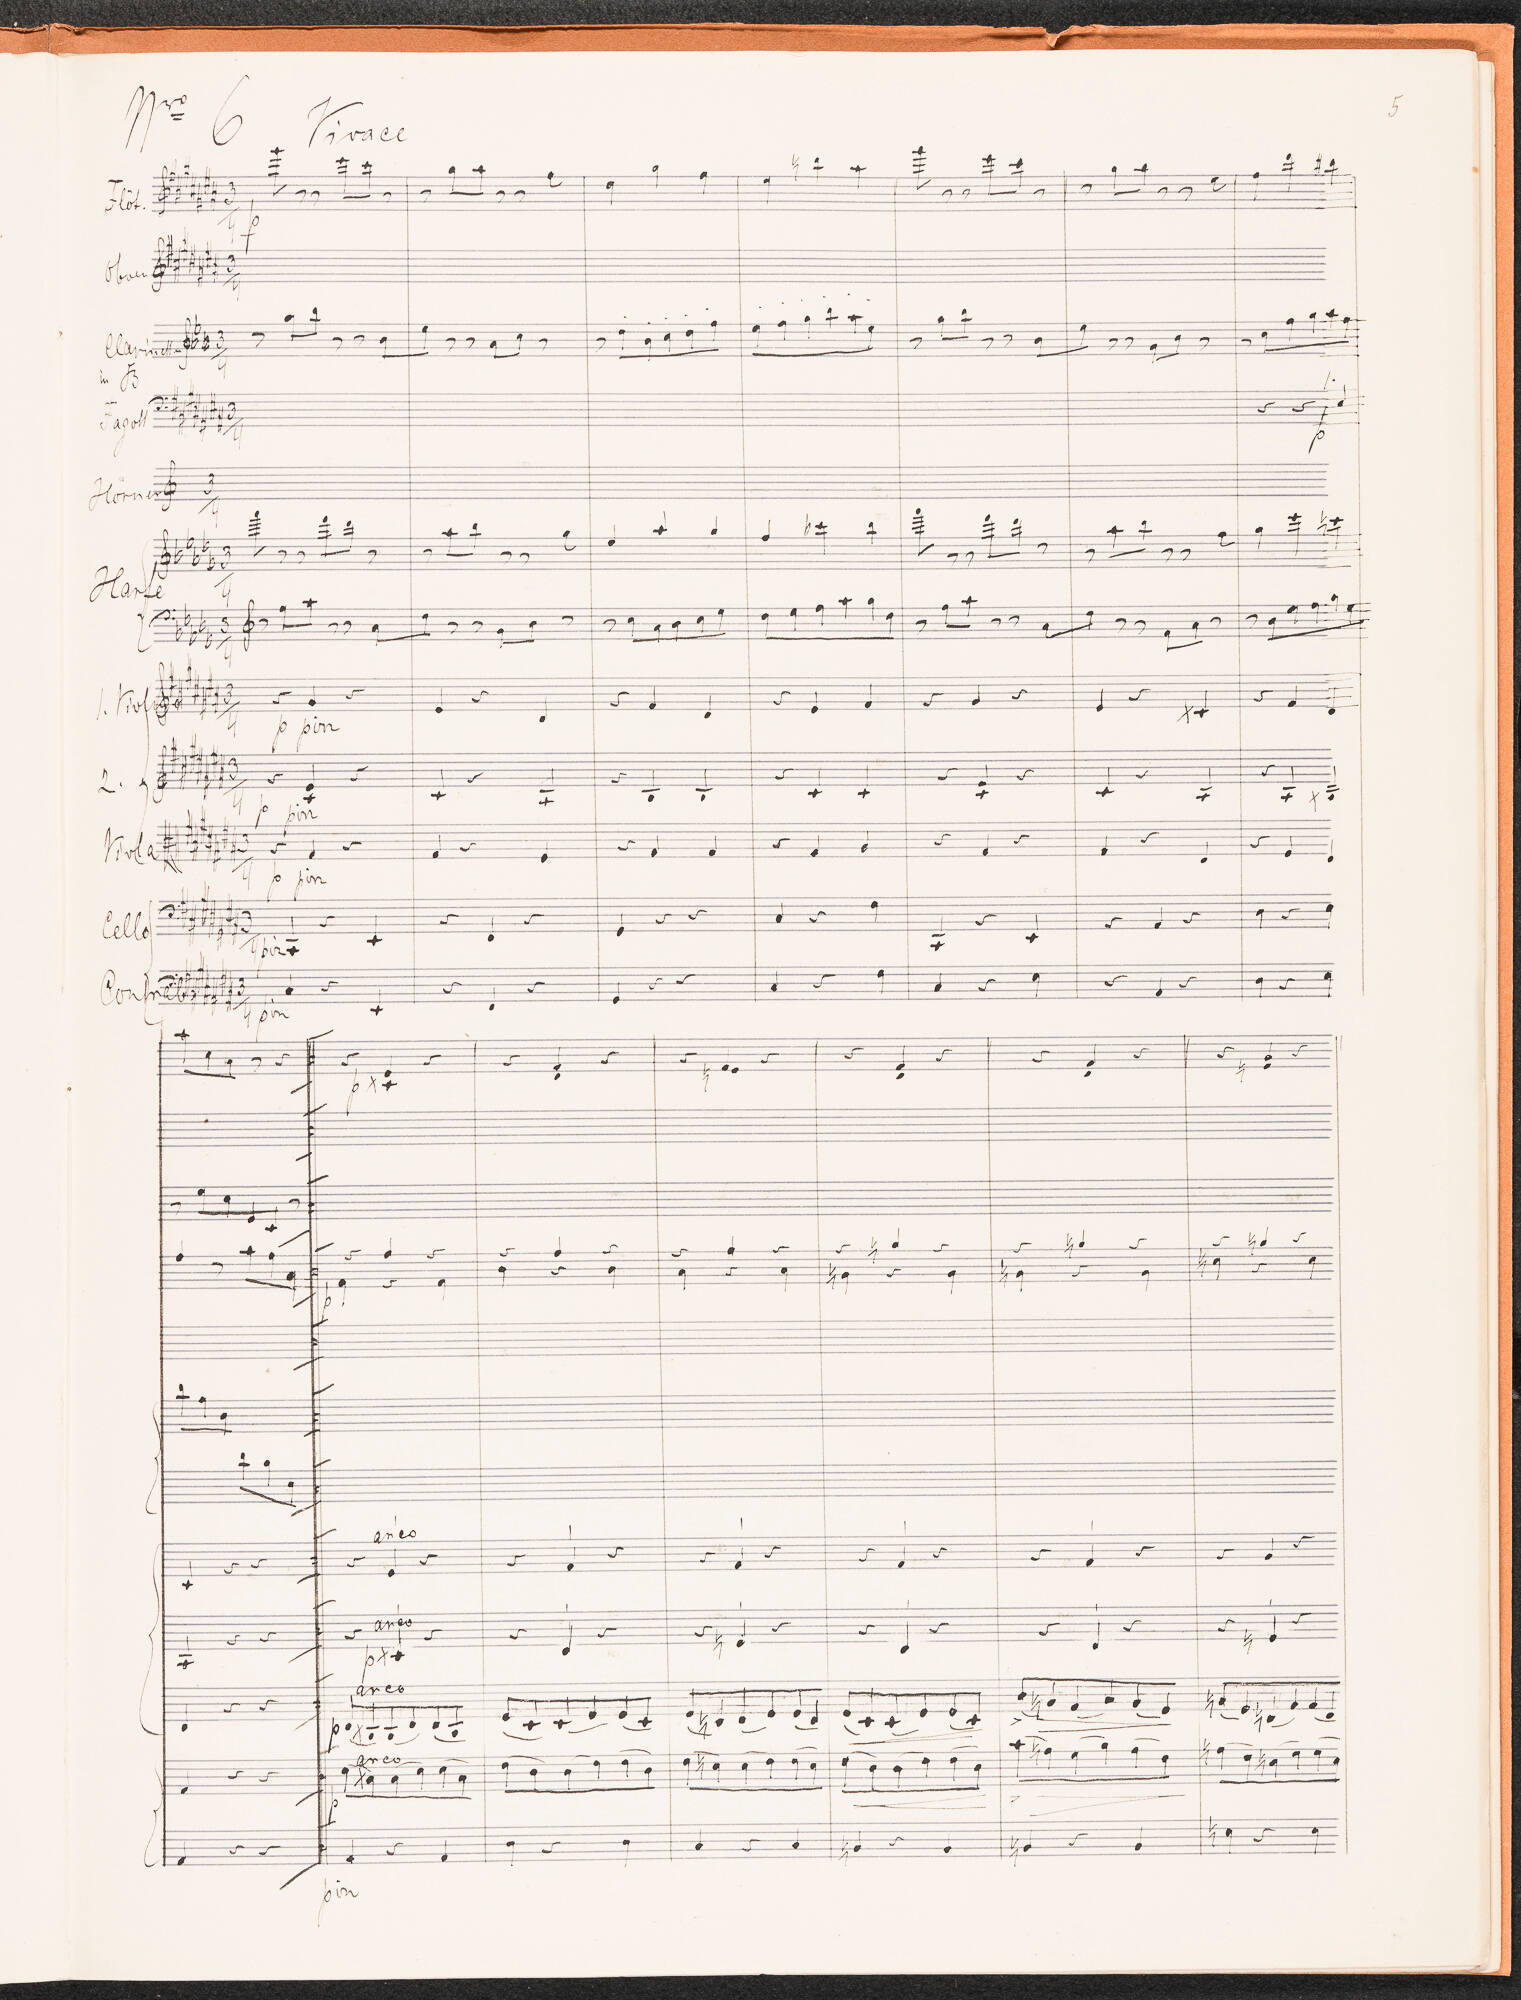 Nro 6 Vivace
5
Flöt.
p
Oboen
Clarinett
in B
Fagott
1.
p
Hörner
Harfe
1. Violine
p pizz
2. "
p pizz
Viola
p pizz
Cello
pizz
Contrab.
pizz
p
p
arco
arco
p
arco
p
arco
p
pizz